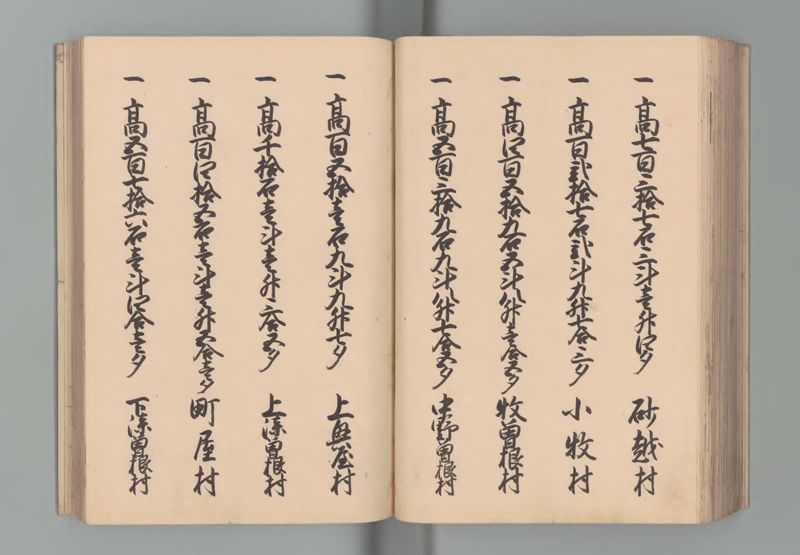 一 高七百三拾七石三斗壱升四夕 砂越村
一 高百弐拾七石弐斗九升七合三夕 小牧村
一 高四百五拾九石五斗八升壱合五夕 牧曽根村
一 高五百三拾九石九斗八升七合五夕 中野曽根村
一 高百五拾壱石九斗九升七夕 上興屋村
一 高千拾石壱斗壱升三合五夕 上漆曽根村
一 高百四拾五石壱斗壱升五合壱夕 町屋村
一 高五百七拾六石壱斗四合壱夕 下漆曽根村